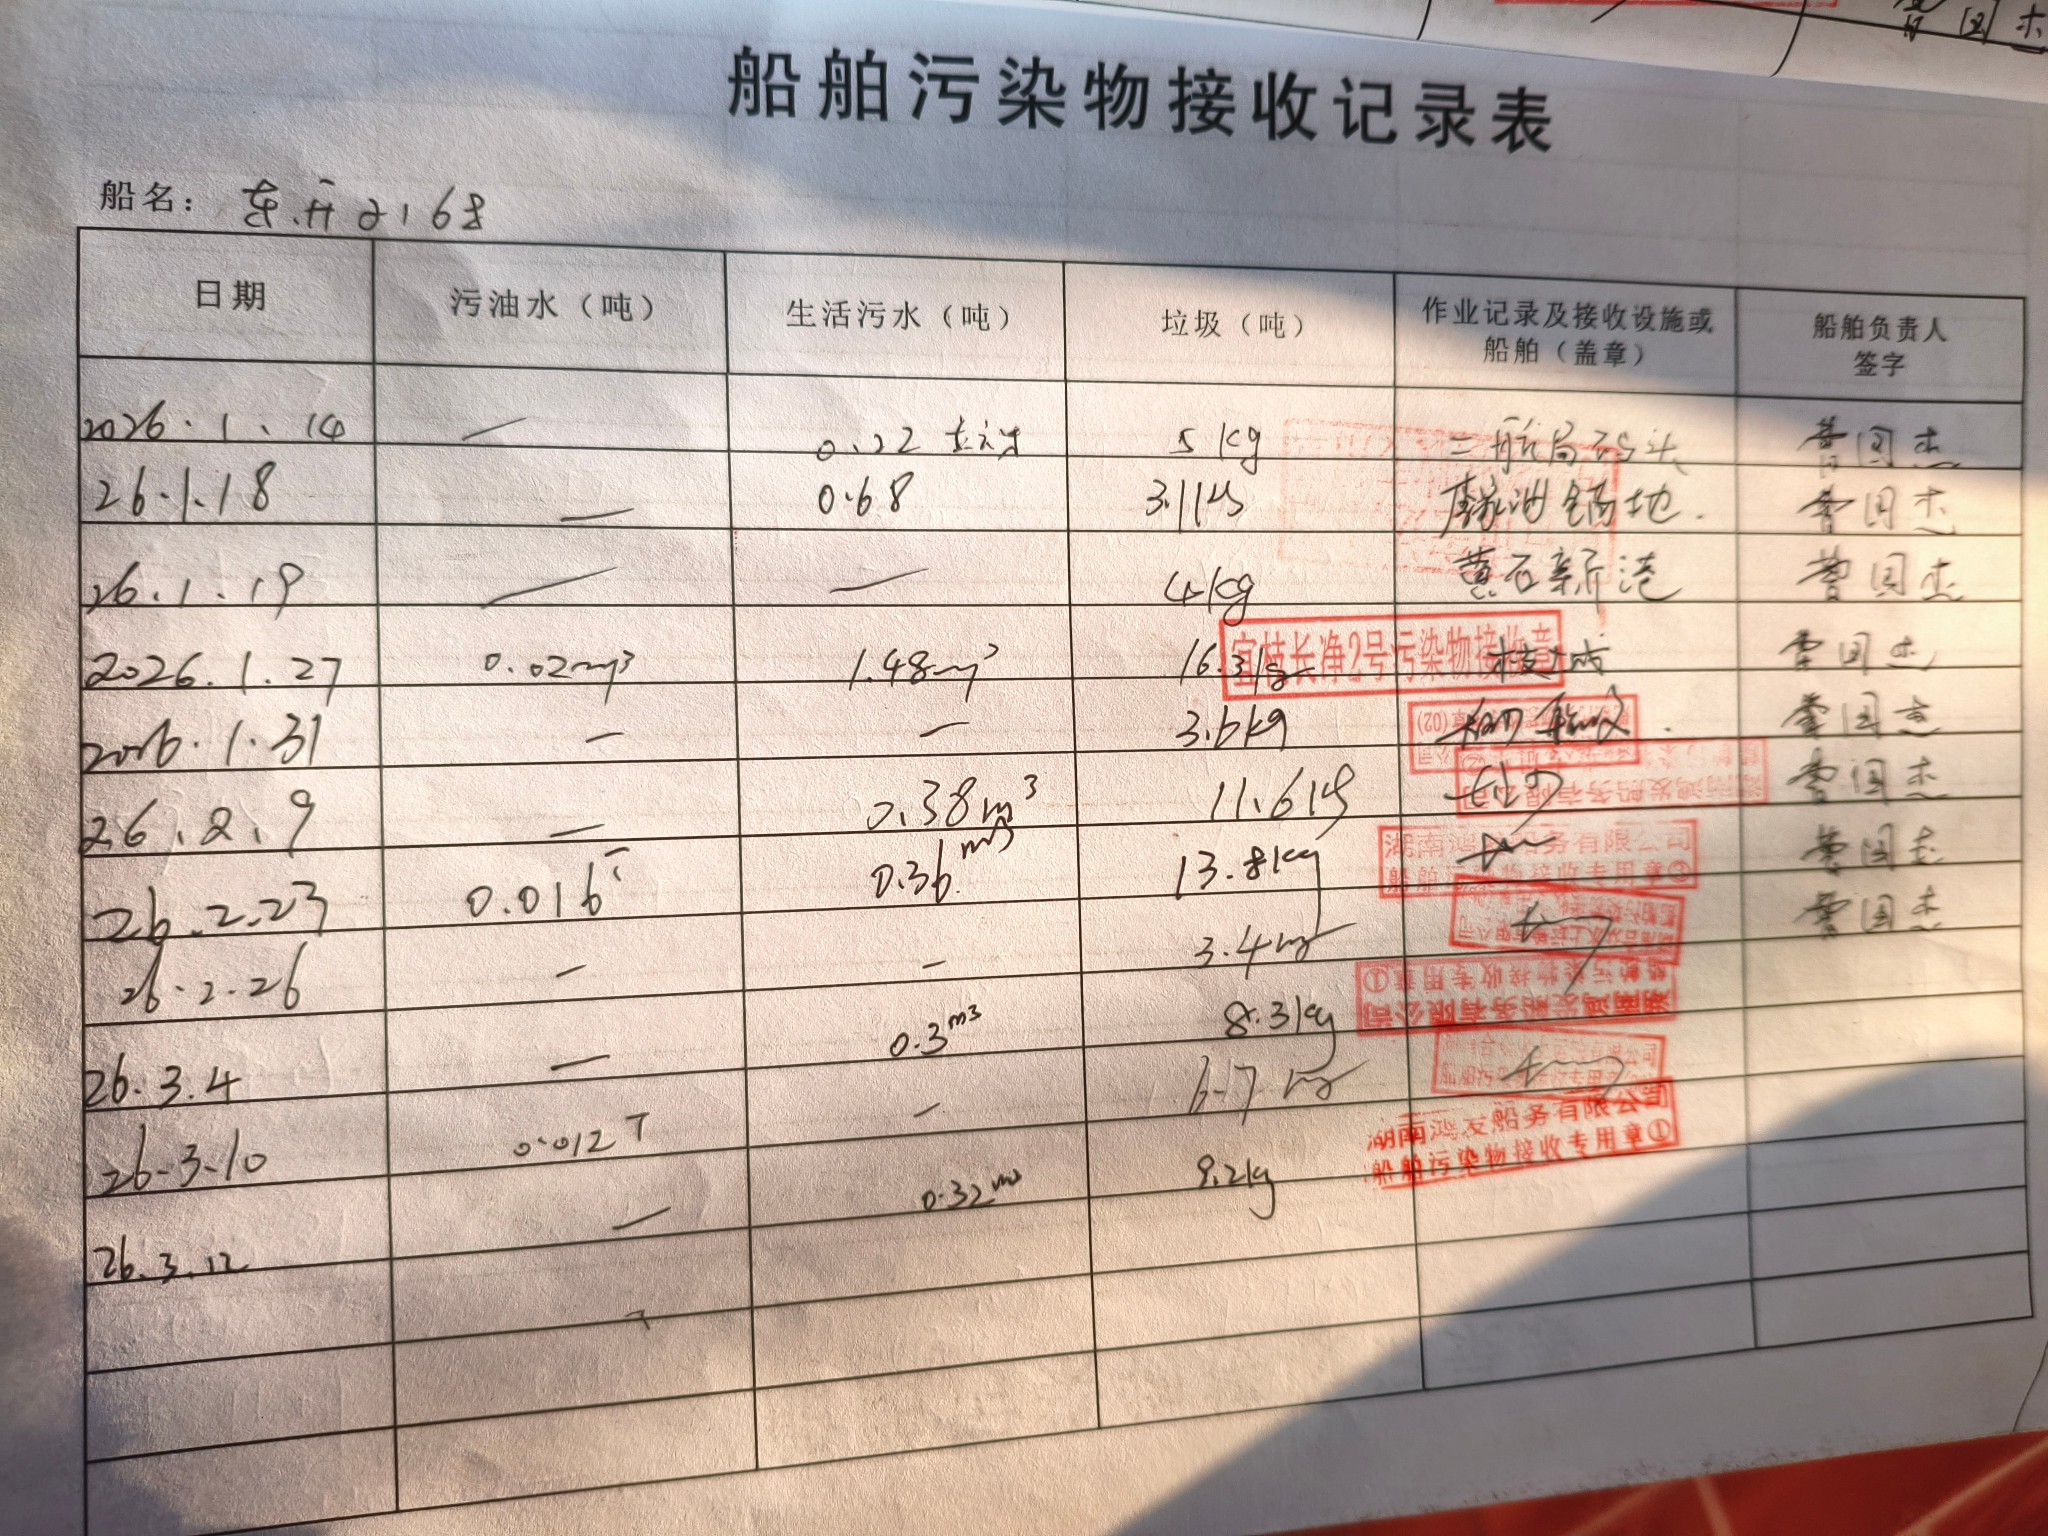 船舶污染物接收记录表
船名: 东升2168
日期 污油水(吨) 生活污水(吨) 垃圾(吨) 作业记录及接收设施或船舶(盖章) 船舶负责人签字
2026.1.14 — 0.22 5kg 二航局码头 曹国杰
26.1.18 — 0.68 3.1kg 曹国杰
26.1.19 — — 4kg 黄石新港 曹国杰
2026.1.27 0.02m³ 1.48m³ 16.3kg 枝城 曹国杰
宜枝长净2号污染物接收章
2026.1.31 — — 3.6kg 曹国杰
(02)
26.2.9 — 0.38m³ 11.6kg 曹国杰
湖南鸿发船务有限公司
26.2.23 0.016 0.36m³ 13.8kg 曹国杰
湖南鸿发船务有限公司
船舶污染物接收专用章②
26.2.26 — — 3.4kg 曹国杰
26.3.4 — 0.3m³ 8.3kg
湖南鸿发船务有限公司
船舶污染物接收专用章①
26.3.10 0.012T — 6.7kg
26.3.12 — 0.32m³ 9.2kg
湖南鸿发船务有限公司
船舶污染物接收专用章①